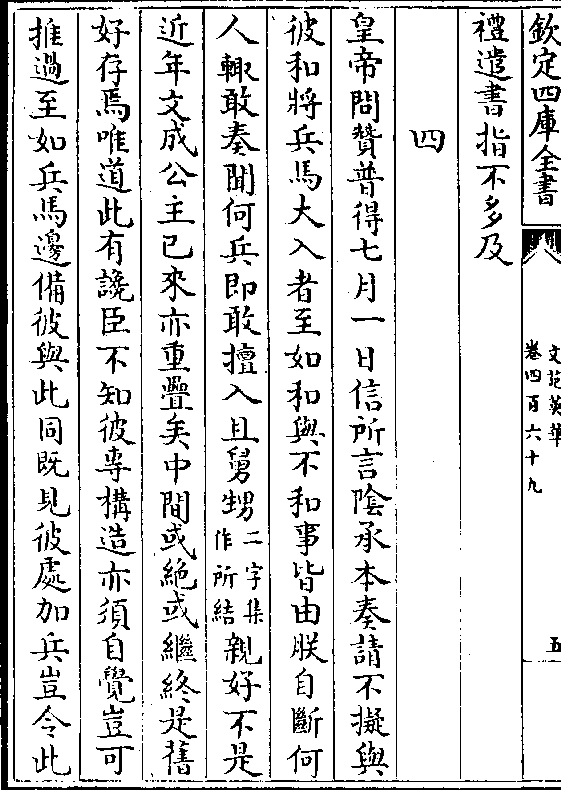 欽定四庫全書
文苑英華
卷四百六十九
五
禮遣書指不多及
四
皇帝問贊普得七月一日信所言陰承本奏請不擬與
彼和將兵馬大入者至如和與不和事皆由朕自斷何
人輙敢奏聞何兵即敢擅入且舅甥二字集作所結親好不是
近年文成公主已來亦重疊矣中間或絶或繼終是舊
好存焉唯道此有讒臣不知彼專構造亦須自覺豈可
推過至如兵馬邊備彼與此同既見彼處加兵豈令此